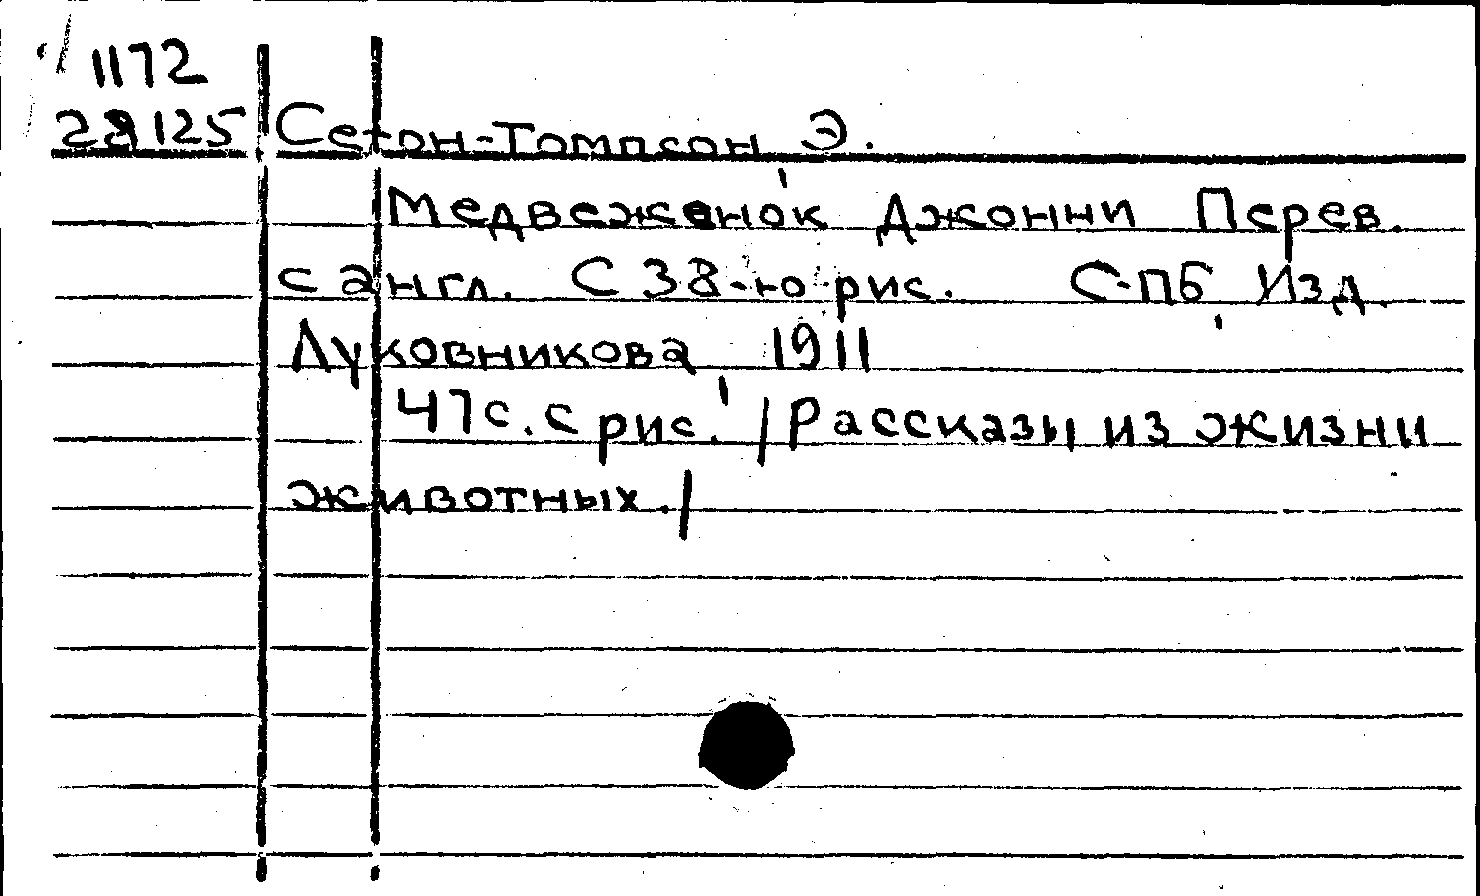 1172
28125 Сетон-Томпсон, Э.
Медвеженок Джонни Перев.
с англ. С 38-ю рис. С-ПБ, Изд.
Луковникова, 1911
47с. с рис. /Рассказы из жизни
животных./